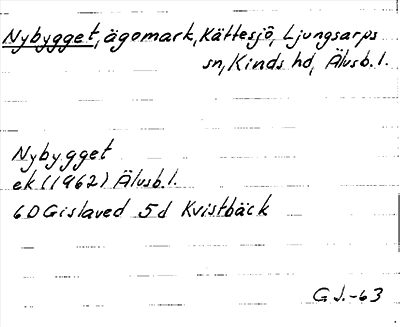 Nybygget, ägomark, Kättesjö, Ljungsarps
sn, Kinds hd, Älvsb. l.
Nybygget
ek (1962) Älvsb. l.
6D Gislaved 5d Kvistbäck
G J.-63